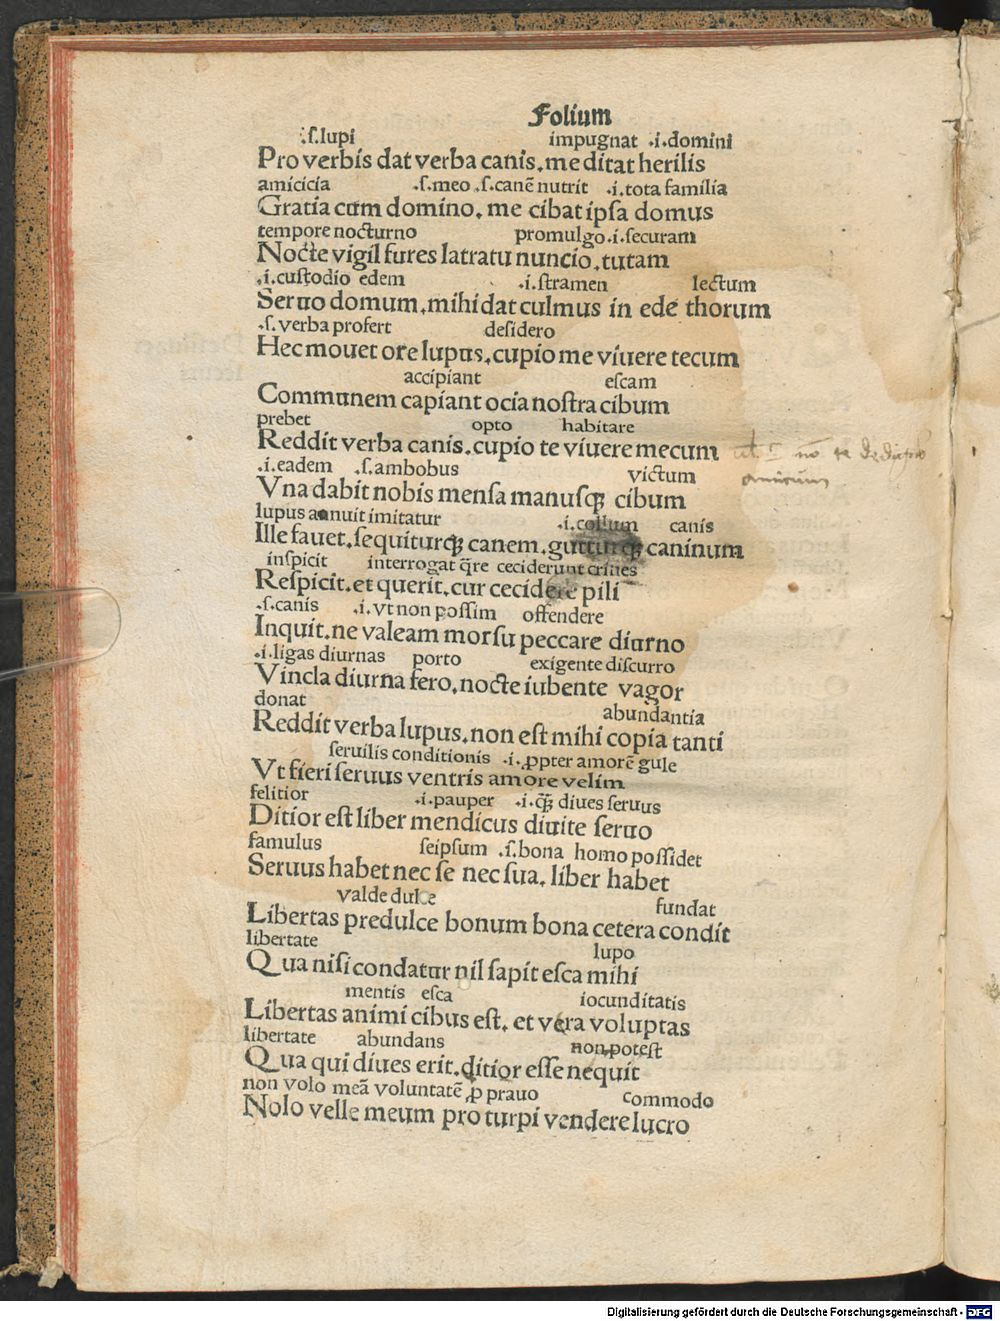 Folium
.ſ.lupi impugnat .i.domini
Pro verbis dat verba canis.me ditat herilis
amicicia .ſ.meo .ſ.canē nutrit .i.tota familia
Gratia cum domino. me cibat ipſa domus
tempore nocturno promulgo.i.ſecuram
Nocte vigil fures latratu nuncio.tutam
.i.cuſtodio edem .i.ſtramen lectum
Seruo domum.mihi dat culmus in ede thorum
.ſ.verba profert deſidero
Hec mouet ore lupus.cupio me viuere tecum
accipiant eſcam
Communem capiant ocia noſtra cibum
prebet opto habitare
Reddit verba canis.cupio te viuere mecum
.i.eadem .ſ.ambobus victum
Vna dabit nobis menſa manuſqꝫ cibum
lupus annuit imitatur .i.collum canis
Ille fauet.ſequiturqꝫ canem.gutturqꝫ caninum
inſpicit interrogat q̄re ceciderunt crines
Reſpicit.et querit.cur cecidere pili
.ſ.canis .i.vt non poſſim offendere
Inquit.ne valeam morſu peccare diurno
.i.ligas diurnas porto exigente diſcurro
Vincla diurna fero.nocte iubente vagor
donat abundantia
Reddit verba lupus.non eſt mihi copia tanti
ſeruilis conditionis .i.ꝓpter amorē gule
Vt fieri ſeruus ventris amore velim
felitior .i.pauper .i.q̄ꝫ diues ſeruus
Ditior eſt liber mendicus diuite ſeruo
famulus ſeipſum .ſ.bona homo poſſidet
Seruus habet nec ſe nec ſua. liber habet
valde dulce fundat
Libertas predulce bonum bona cetera condit
libertate lupo
Qua niſi condatur nil ſapit eſca mihi
mentis eſca iocunditatis
Libertas animi cibus eſt. et vera voluptas
libertate abundans non poteſt
Qua qui diues erit.ditior eſſe nequit
non volo meā voluntatē ꝓ prauo commodo
Nolo velle meum pro turpi vendere lucro
Digitalisierung gefördert durch die Deutsche Forschungsgemeinschaft - DFG